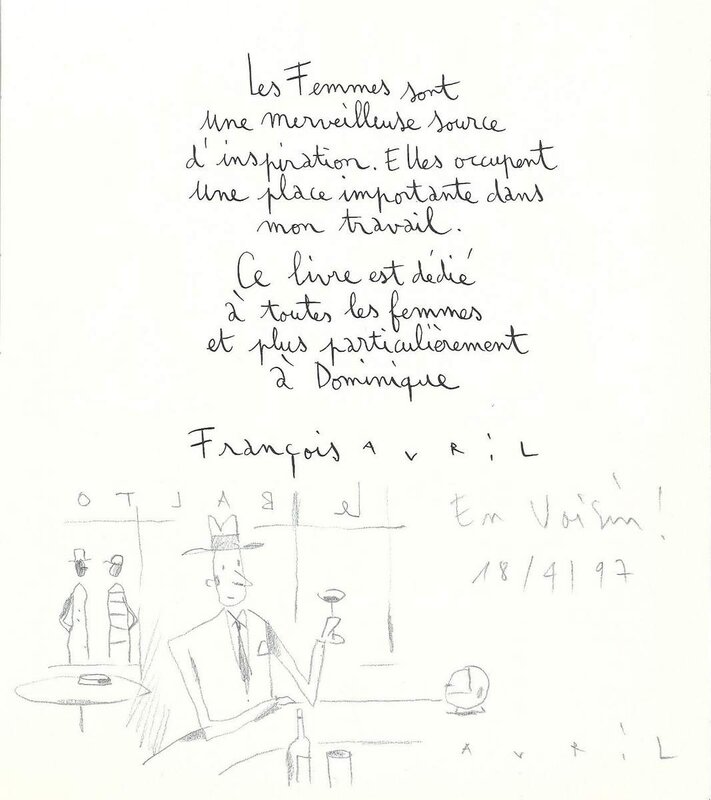 Les Femmes sont
une merveilleuse source
d'inspiration. Elles occupent
une place importante dans
mon travail.
Ce livre est dédié
à toutes les femmes
et plus particulièrement
à Dominique
François AVRIL
Le BALTO
En Voisin!
18/4/97
AVRIL